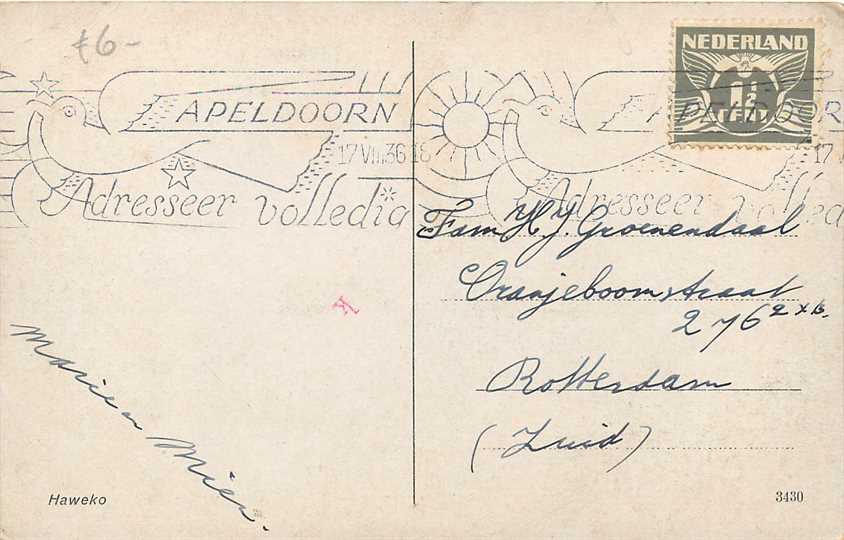 £6-
NEDERLAND
1½
CENT
APELDOORN
APELDOOR
17 VIII 36 18
17 V
Adresseer volledig
Adresseer volled
Fam H.J. Groenendaal
Oranjeboomstraat
276
Rotterdam
(Zuid)
K
Marie en Mien.
Haweko
3430